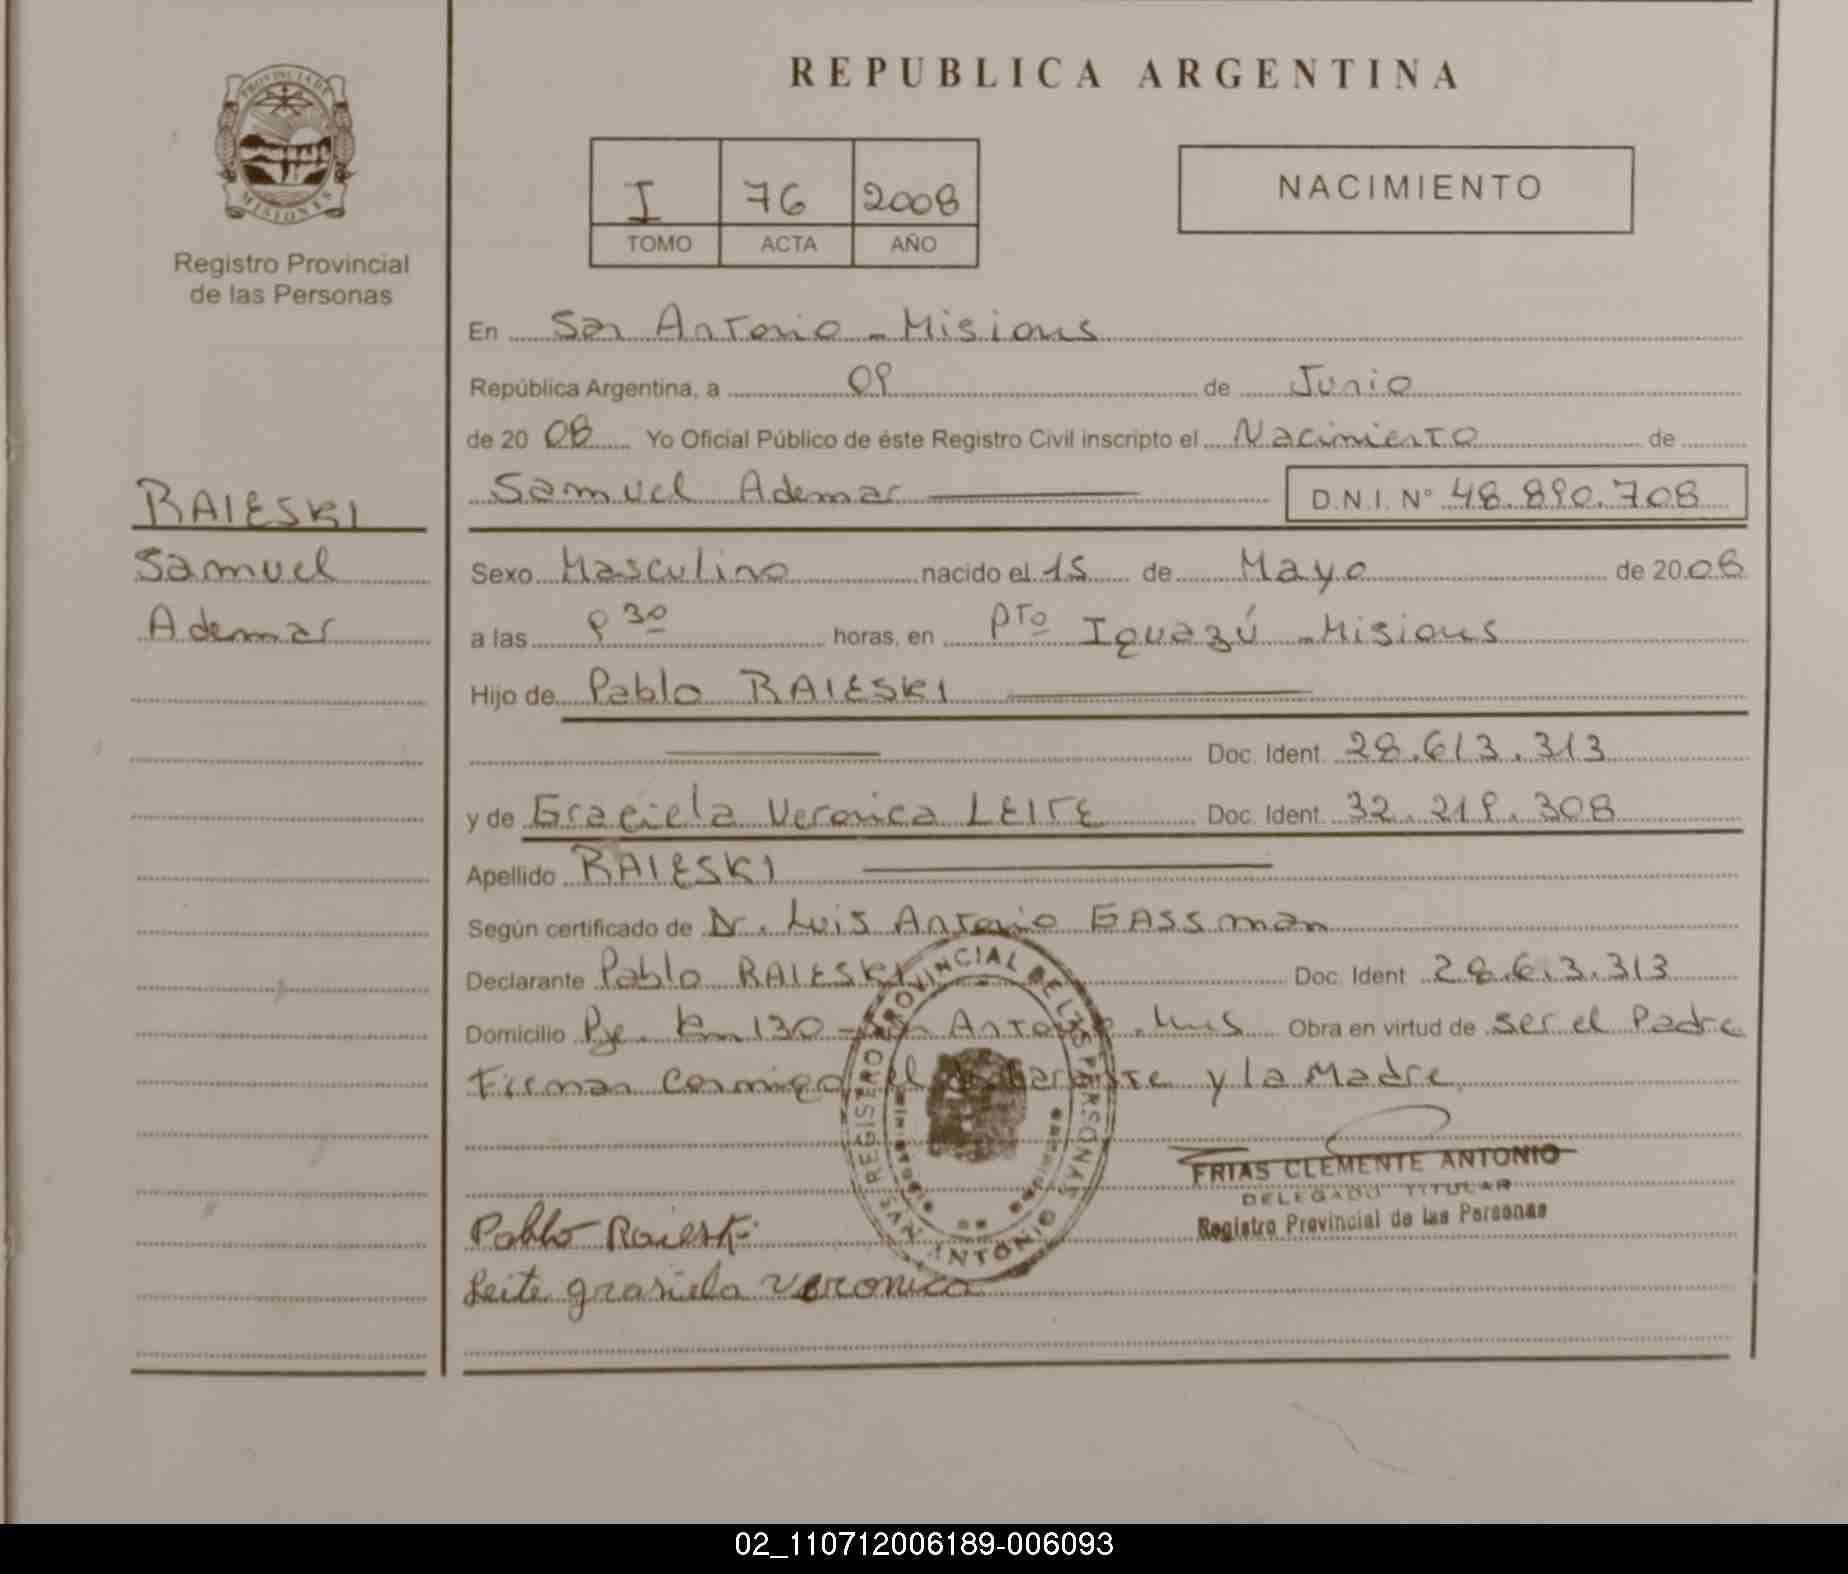 REPUBLICA ARGENTINA
PROVINCIA DE
MISIONES
Registro Provincial
de las Personas
I 76 2008
TOMO ACTA AÑO
NACIMIENTO
En San Antonio - Misiones
República Argentina, a 09 de Junio
de 20 08 Yo Oficial Público de éste Registro Civil inscripto el Nacimiento de
Samuel Ademar D.N.I. N° 48.890.708
RAIESKI
Samuel
Ademar
Sexo Masculino nacido el 15 de Mayo de 2008
a las 9 30 horas, en Pto Iguazú - Misiones
Hijo de Pablo RAIESKI
Doc. Ident. 28.613.313
y de Graciela Veronica LEITE Doc. Ident. 32.219.308
Apellido RAIESKI
Según certificado de Dr. Luis Antonio GASSman
Declarante Pablo RAIESKI Doc. Ident 28.613.313
Domicilio Pje. Km 130 - San Antonio. Mnes Obra en virtud de ser el Padre
Firman Conmigo el declarante y la Madre
REGISTRO PROVINCIAL DE LAS PERSONAS
SAN ANTONIO
FRIAS CLEMENTE ANTONIO
DELEGADO TITULAR
Registro Provincial de las Personas
Pablo Raieski
Leite grasiela veronica
02_110712006189-006093